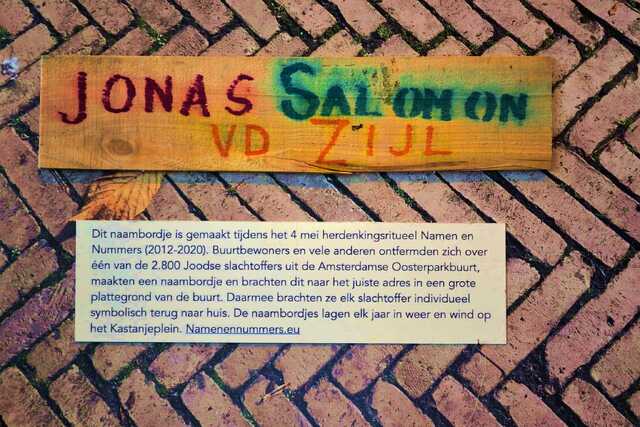 JONAS SALOMON
VD ZIJL
Dit naambordje is gemaakt tijdens het 4 mei herdenkingsritueel Namen en
Nummers (2012-2020). Buurtbewoners en vele anderen ontfermden zich over
één van de 2.800 Joodse slachtoffers uit de Amsterdamse Oosterparkbuurt,
maakten een naambordje en brachten dit naar het juiste adres in een grote
plattegrond van de buurt. Daarmee brachten ze elk slachtoffer individueel
symbolisch terug naar huis. De naambordjes lagen elk jaar in weer en wind op
het Kastanjeplein. Namenennummers.eu